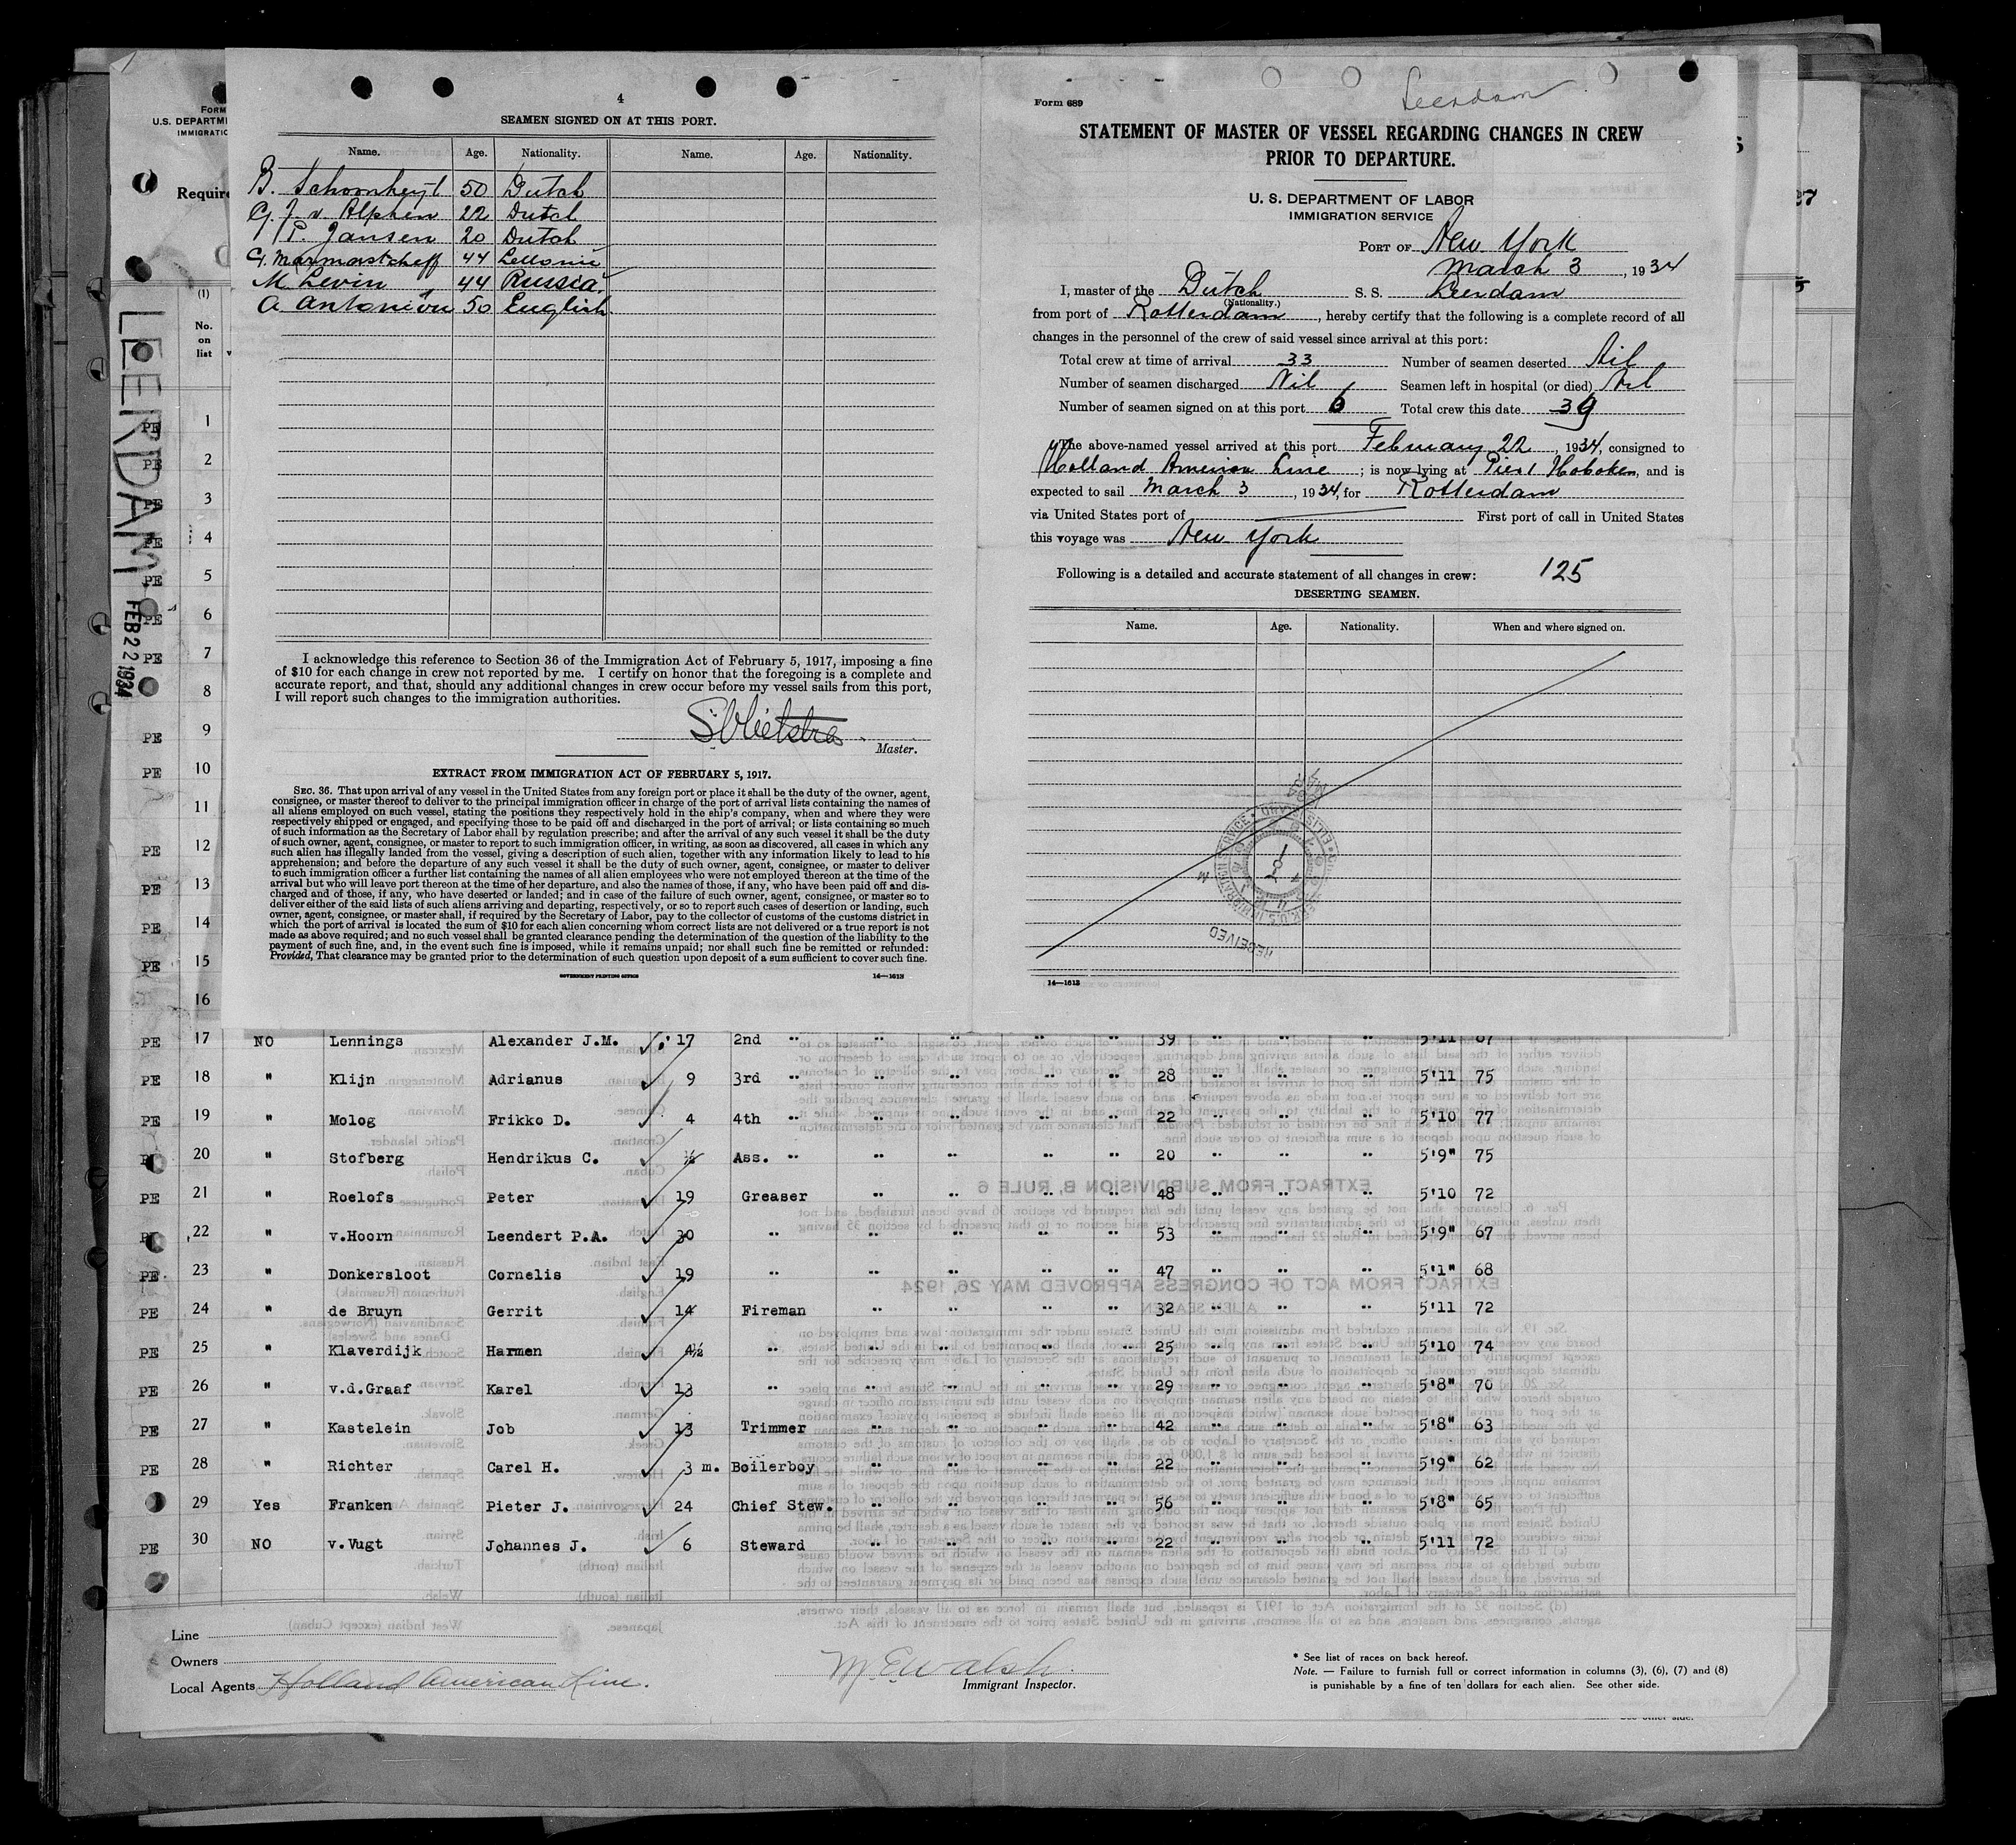 4
SEAMEN SIGNED ON AT THIS PORT.
Name. Age. Nationality. Name. Age. Nationality.
B. Schoonheyt 50 Dutch
G. J. v. Alphen 22 Dutch
P. Jansen 20 Dutch
G. Marmorstcheff 44
M. Levin 44 Russia
A. Antoniou 50 English
I acknowledge this reference to Section 36 of the Immigration Act of February 5, 1917, imposing a fine
of $10 for each change in crew not reported by me. I certify on honor that the foregoing is a complete and
accurate report, and that, should any additional changes in crew occur before my vessel sails from this port,
I will report such changes to the immigration authorities.
Master.
EXTRACT FROM IMMIGRATION ACT OF FEBRUARY 5, 1917.
SEC. 36. That upon arrival of any vessel in the United States from any foreign port or place it shall be the duty of the owner, agent,
consignee, or master thereof to deliver to the principal immigration officer in charge of the port of arrival lists containing the names of
all aliens employed on such vessel, stating the positions they respectively hold in the ship's company, when and where they were
respectively shipped or engaged, and specifying those to be paid off and discharged in the port of arrival; or lists containing so much
of such information as the Secretary of Labor shall by regulation prescribe; and after the arrival of any such vessel it shall be the duty
of such owner, agent, consignee, or master to report to such immigration officer, in writing, as soon as discovered, all cases in which any
such alien has illegally landed from the vessel, giving a description of such alien, together with any information likely to lead to his
apprehension; and before the departure of any such vessel it shall be the duty of such owner, agent, consignee, or master to deliver
to such immigration officer a further list containing the names of all alien employees who were not employed thereon at the time of the
arrival but who will leave port thereon at the time of her departure, and also the names of those, if any, who have been paid off and dis-
charged and of those, if any, who have deserted or landed; and in case of the failure of such owner, agent, consignee, or master so to
deliver either of the said lists of such aliens arriving and departing, respectively, or so to report such cases of desertion or landing, such
owner, agent, consignee, or master shall, if required by the Secretary of Labor, pay to the collector of customs of the customs district in
which the port of arrival is located the sum of $10 for each alien concerning whom correct lists are not delivered or a true report is not
made as above required; and no such vessel shall be granted clearance pending the determination of the question of the liability to the
payment of such fine, and, in the event such fine is imposed, while it remains unpaid; nor shall such fine be remitted or refunded:
Provided, That clearance may be granted prior to the determination of such question upon deposit of a sum sufficient to cover such fine.
GOVERNMENT PRINTING OFFICE 14—1613
Leerdam
Form 689
STATEMENT OF MASTER OF VESSEL REGARDING CHANGES IN CREW
PRIOR TO DEPARTURE.
U. S. DEPARTMENT OF LABOR
IMMIGRATION SERVICE
PORT OF New York
March 3, 1934
I, master of the Dutch S. S. Leerdam
(Nationality.)
from port of Rotterdam, hereby certify that the following is a complete record of all
changes in the personnel of the crew of said vessel since arrival at this port:
Total crew at time of arrival 33 Number of seamen deserted Nil
Number of seamen discharged Nil Seamen left in hospital (or died) Nil
Number of seamen signed on at this port 6 Total crew this date 39
The above-named vessel arrived at this port February 22, 1934, consigned to
Holland American Line; is now lying at Pier 1 Hoboken, and is
expected to sail March 3, 1934, for Rotterdam
via United States port of First port of call in United States
this voyage was New York
Following is a detailed and accurate statement of all changes in crew: 125
DESERTING SEAMEN.
Name. Age. Nationality. When and where signed on.
RECEIVED
14—1613
FORM
U.S. DEPARTM
IMMIGRATIO
Require
(1)
No.
on
list
LEERDAM FEB 22 1934
PE 1
PE 2
PE 3
PE 4
PE 5
PE 6
PE 7
8
PE 9
PE 10
PE 11
PE 12
PE 13
PE 14
PE 15
16
PE 17 NO Lennings Alexander J.M. 17 2nd " " " " " 39 " " " 5'11 67
PE 18 " Klijn Adrianus 9 3rd " " " " " 28 " " " 5'11 75
PE 19 " Molog Frikko D. 4 4th " " " " " 22 " " " 5'10 77
20 " Stofberg Hendrikus C. ½ Ass. " " " " " 20 " " " 5'9" 75
PE 21 " Roelofs Peter 19 Greaser " " " " 48 " " " 5'10 72
22 " v.Hoorn Leendert P.A. 30 " " " " " 53 " " " 5'9" 67
PE 23 " Donkersloot Cornelis 19 " " " " " 47 " " " 5'1" 68
PE 24 " de Bruyn Gerrit 14 Fireman " " " " 32 " " " 5'11 72
PE 25 " Klaverdijk Harmen 4½ " " " " " 25 " " " 5'10 74
PE 26 " v.d.Graaf Karel 13 " " " " " 29 " " " 5'8" 70
PE 27 " Kastelein Job 13 Trimmer " " " " 42 " " " 5'8" 63
PE 28 " Richter Carel H. 3 m. Boilerboy " " " " 22 " " " 5'9" 62
29 Yes Franken Pieter J. 24 Chief Stew. " " " " 56 " " " 5'8" 65
PE 30 NO v.Vugt Johannes J. 6 Steward " " " " 22 " " " 5'11 72
Line
Owners
Local Agents Holland American Line.
M E Walsh.
Immigrant Inspector.
* See list of races on back hereof.
Note. — Failure to furnish full or correct information in columns (3), (6), (7) and (8)
is punishable by a fine of ten dollars for each alien. See other side.